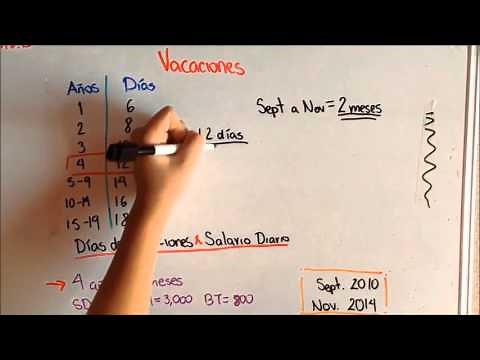 Vacaciones
Años Días
1 6
2 8
3
4 12
5-9 14
10-14 16
15-19 18
2 días
Sept a Nov = 2 meses
Días de ciones x Salario Diario
→ 4 a meses
SD = 3,000 BT = 800
Sept. 2010
Nov. 2014